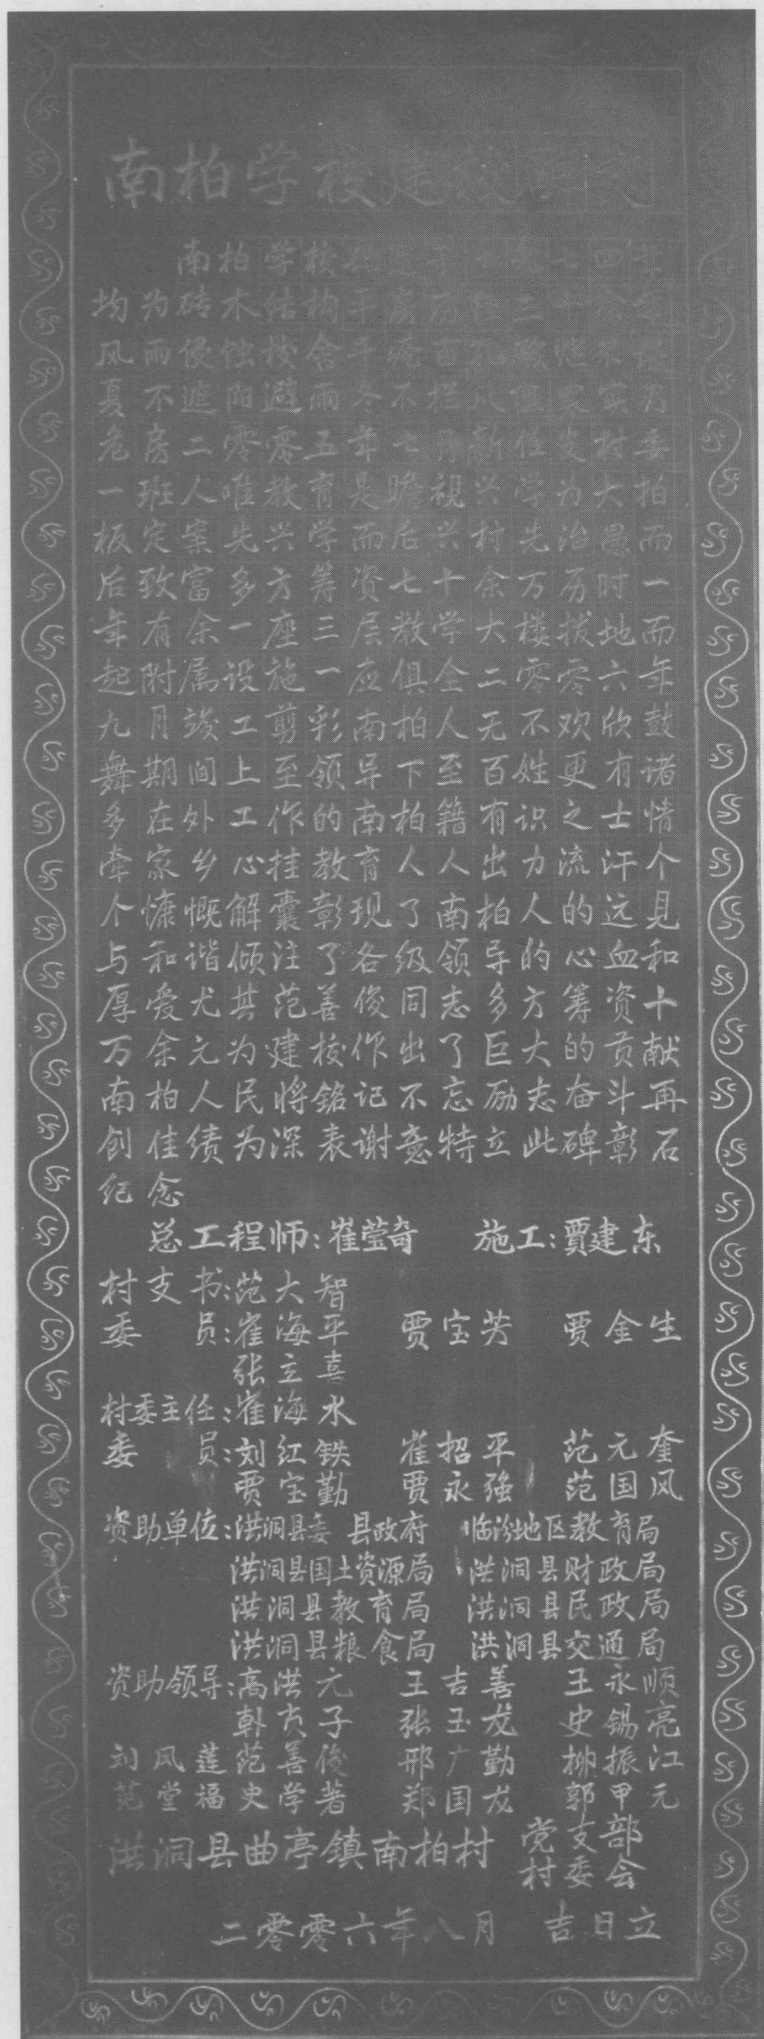 南柏学校建校
南柏学校始建于一九七四年
均为砖木结构平房历经三十余年
风雨侵蚀校舍千疮百孔破烂不堪
夏不遮阳避雨冬不 实为
危房二零零五年七月新任村支委
一班人唯教育是瞻视兴学为大拍
板定案先兴学而后兴村治愚而
后致富多方筹资七十余万历时一
年有余一座三层教学大楼拔地而
起附属设施一应俱全二零零六年
九月竣工剪彩南柏人无不欢欣鼓
舞期间上至领导下至百姓更有诸
多在外工作的南柏籍有识之士情
牵家乡心挂教育人人出力流汗个
个慷慨解囊彰现了南柏人的远见
与和谐倾注了各级领导的心血和
厚爱尤其范善俊同志多方筹资十
万余元为建校作出了巨大的贡献
南柏人民将铭记不忘励志奋斗再
创佳绩为深表谢意特立此碑彰石
纪念
总工程师:崔莹奇 施工:贾建东
村支书:范大智
委员:崔海平 贾宝芳 贾金生
张立喜
村委主任:崔海水
委员:刘红铁 崔招平 范元奎
贾宝勤 贾永强 范国风
资助单位:洪洞县委 县政府 临汾地区教育局
洪洞县国土资源局 洪洞县财政局
洪洞县教育局 洪洞县民政局
洪洞县粮食局 洪洞县交通局
资助领导:高洪元 王吉善 王永顺
韩贞子 张玉龙 史锡亮
刘风莲 范善俊 邢广勤 柳振江
范堂福 史学著 郑国龙 郭甲元
洪洞县曲亭镇南柏村 党支部
村委会
二零零六年八月 吉日立